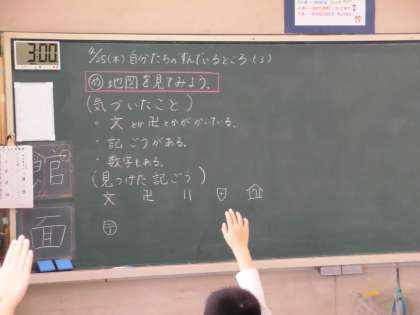 3:00
4/25(木)自分たちのすんでいるところ(3)
め 地図を見てみよう。
(気づいたこと)
・文とか卍とかがかいている。
・記ごうがある。
・数字もある。
(見つけた記ごう)
文 卍 〃
〒
館
面